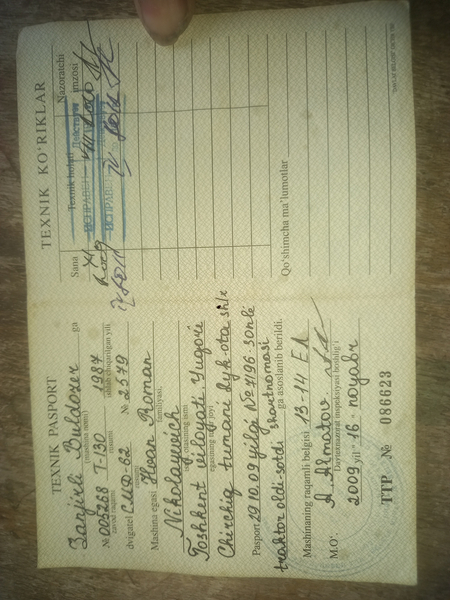 TEXNIK PASPORT
Zanjirli Buldozer ga
(mashina nomi)
№ 005268 T-130 1987
zavod raqami rusumi ishlab chiqarilgan yili,
dvigatel СМД-62 № 2579
rusumi
Mashina egasi Roman
familiyasi,
Nikolayevich
ismi, otasining ismi
Toshkent viloyati Yuqori
egasining turar joyi
Chirchiq tumani
Pasport 29.10.09 yilgi № 7196 sonli
traktor oldi-sotdi shartnomasi
ga asoslanib berildi.
Mashinaning raqamli belgisi 13-14 EA
M.O'. A. Almatov
Davtexnazorat inspeksiyasi boshlig'i
2009 yil "16" noyabr
TTP № 086623
TEXNIK KO'RIKLAR
Sana Texnik holati Nazoratchi imzosi
ИСПРАВЕН
ИСПРАВЕН
Qo'shimcha ma'lumotlar